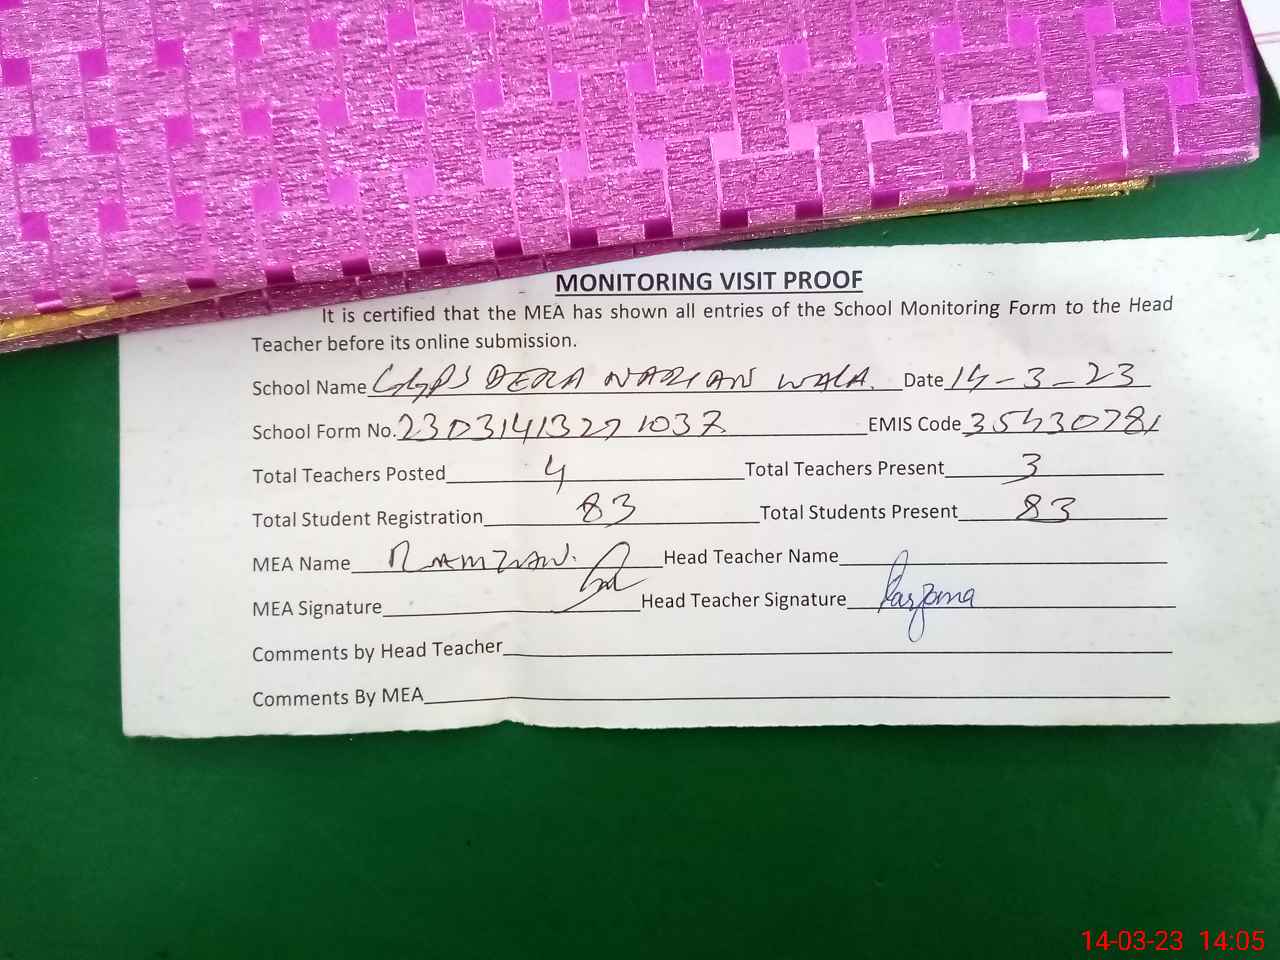 MONITORING VISIT PROOF
It is certified that the MEA has shown all entries of the School Monitoring Form to the Head
Teacher before its online submission.
School Name GGPS DERA NARIAN WALA. Date 14-3-23
School Form No. 23031413271037 EMIS Code 35430781
Total Teachers Posted 4 Total Teachers Present 3
Total Student Registration 83 Total Students Present 83
MEA Name RAMZAN. Head Teacher Name
MEA Signature Head Teacher Signature Farzana
Comments by Head Teacher
Comments By MEA
14-03-23 14:05